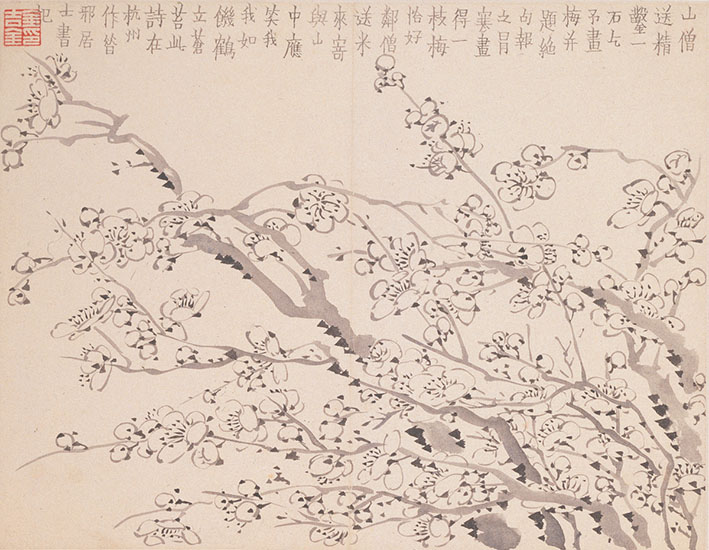 山僧
送精
鑿一
石乞
予畫
梅并
題絕
句報
之冒
寒畫
得一
枝梅
恰好
鄰僧
送米
來寄
與山
中應
笑我
我如
饑鶴
立蒼
苔此
詩在
杭州
作昔
邪居
士書
記